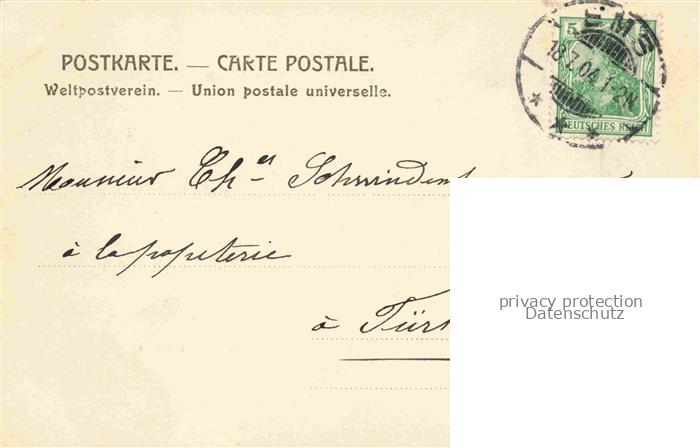 POSTKARTE. — CARTE POSTALE.
Weltpostverein. — Union postale universelle.
EMS
18.7.04.1-2N.
5
DEUTSCHES REICH
Monsieur Ch^es
à la papeterie
à
privacy protection
Datenschutz